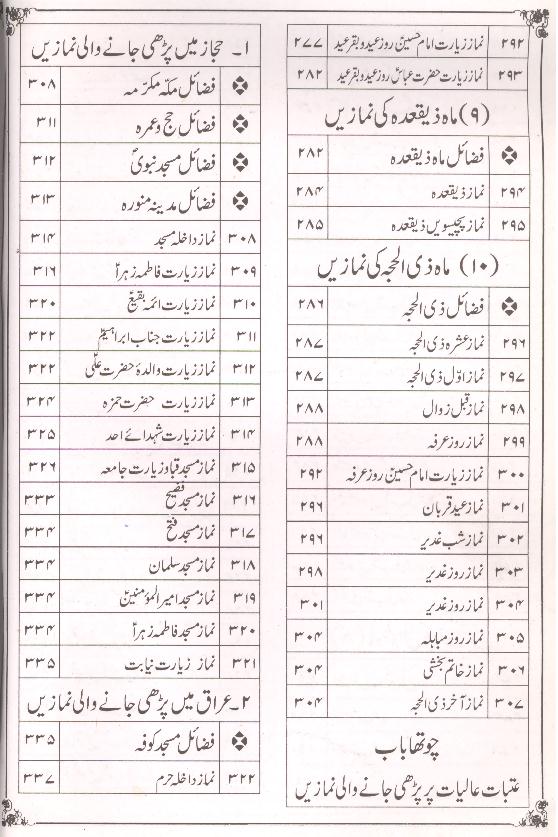 ۲۹۲ نماز زیارت امام حسینؑ روز عید و بقرعید ۲۷۷
۲۹۳ نماز زیارت حضرت عباسؑ روز عید و بقرعید ۲۸۲
(۹) ماہ ذیقعدہ کی نمازیں
فضائل ماہ ذیقعدہ ۲۸۲
۲۹۴ نماز ذیقعدہ ۲۸۴
۲۹۵ نماز پچیسویں ذیقعدہ ۲۸۵
(۱۰) ماہ ذی الحجہ کی نمازیں
فضائل ذی الحجہ ۲۸۶
۲۹۶ نماز عشرہ ذی الحجہ ۲۸۷
۲۹۷ نماز اوّل ذی الحجہ ۲۸۷
۲۹۸ نماز قبل زوال ۲۸۸
۲۹۹ نماز روز عرفہ ۲۸۸
۳۰۰ نماز زیارت امام حسینؑ روز عرفہ ۲۹۲
۳۰۱ نماز عید قربان ۲۹۶
۳۰۲ نماز شب غدیر ۲۹۶
۳۰۳ نماز روز غدیر ۲۹۸
۳۰۴ نماز روز غدیر ۳۰۱
۳۰۵ نماز روز مباہلہ ۳۰۴
۳۰۶ نماز خاتم بخشی ۳۰۴
۳۰۷ نماز آخر ذی الحجہ ۳۰۴
چوتھا باب
عتبات عالیات پر پڑھی جانے والی نمازیں
۱۔ حجاز میں پڑھی جانے والی نمازیں
فضائل مکّہ مکرّمہ ۳۰۸
فضائل حج و عمرہ ۳۱۱
فضائل مسجد نبویؐ ۳۱۲
فضائل مدینہ منورہ ۳۱۳
۳۰۸ نماز داخلہ مسجد ۳۱۴
۳۰۹ نماز زیارت فاطمہ زہراؑ ۳۱۶
۳۱۰ نماز زیارت ائمہ بقیعؑ ۳۲۰
۳۱۱ نماز زیارت جناب ابراہیمؑ ۳۲۲
۳۱۲ نماز زیارت والدۂ حضرت علیؑ ۳۲۲
۳۱۳ نماز زیارت حضرت حمزہ ۳۲۴
۳۱۴ نماز زیارت شہدائے احد ۳۲۵
۳۱۵ نماز مسجد قبا و زیارت جامعہ ۳۲۶
۳۱۶ نماز مسجد فضیح ۳۳۳
۳۱۷ نماز مسجد فتح ۳۳۴
۳۱۸ نماز مسجد سلمان ۳۳۴
۳۱۹ نماز مسجد امیرالمؤمنینؑ ۳۳۴
۳۲۰ نماز مسجد فاطمہ زہراؑ ۳۳۴
۳۲۱ نماز زیارت نیابت ۳۳۵
۲۔ عراق میں پڑھی جانے والی نمازیں
فضائل مسجد کوفہ ۳۳۵
۳۲۲ نماز داخلہ حرم ۳۳۷